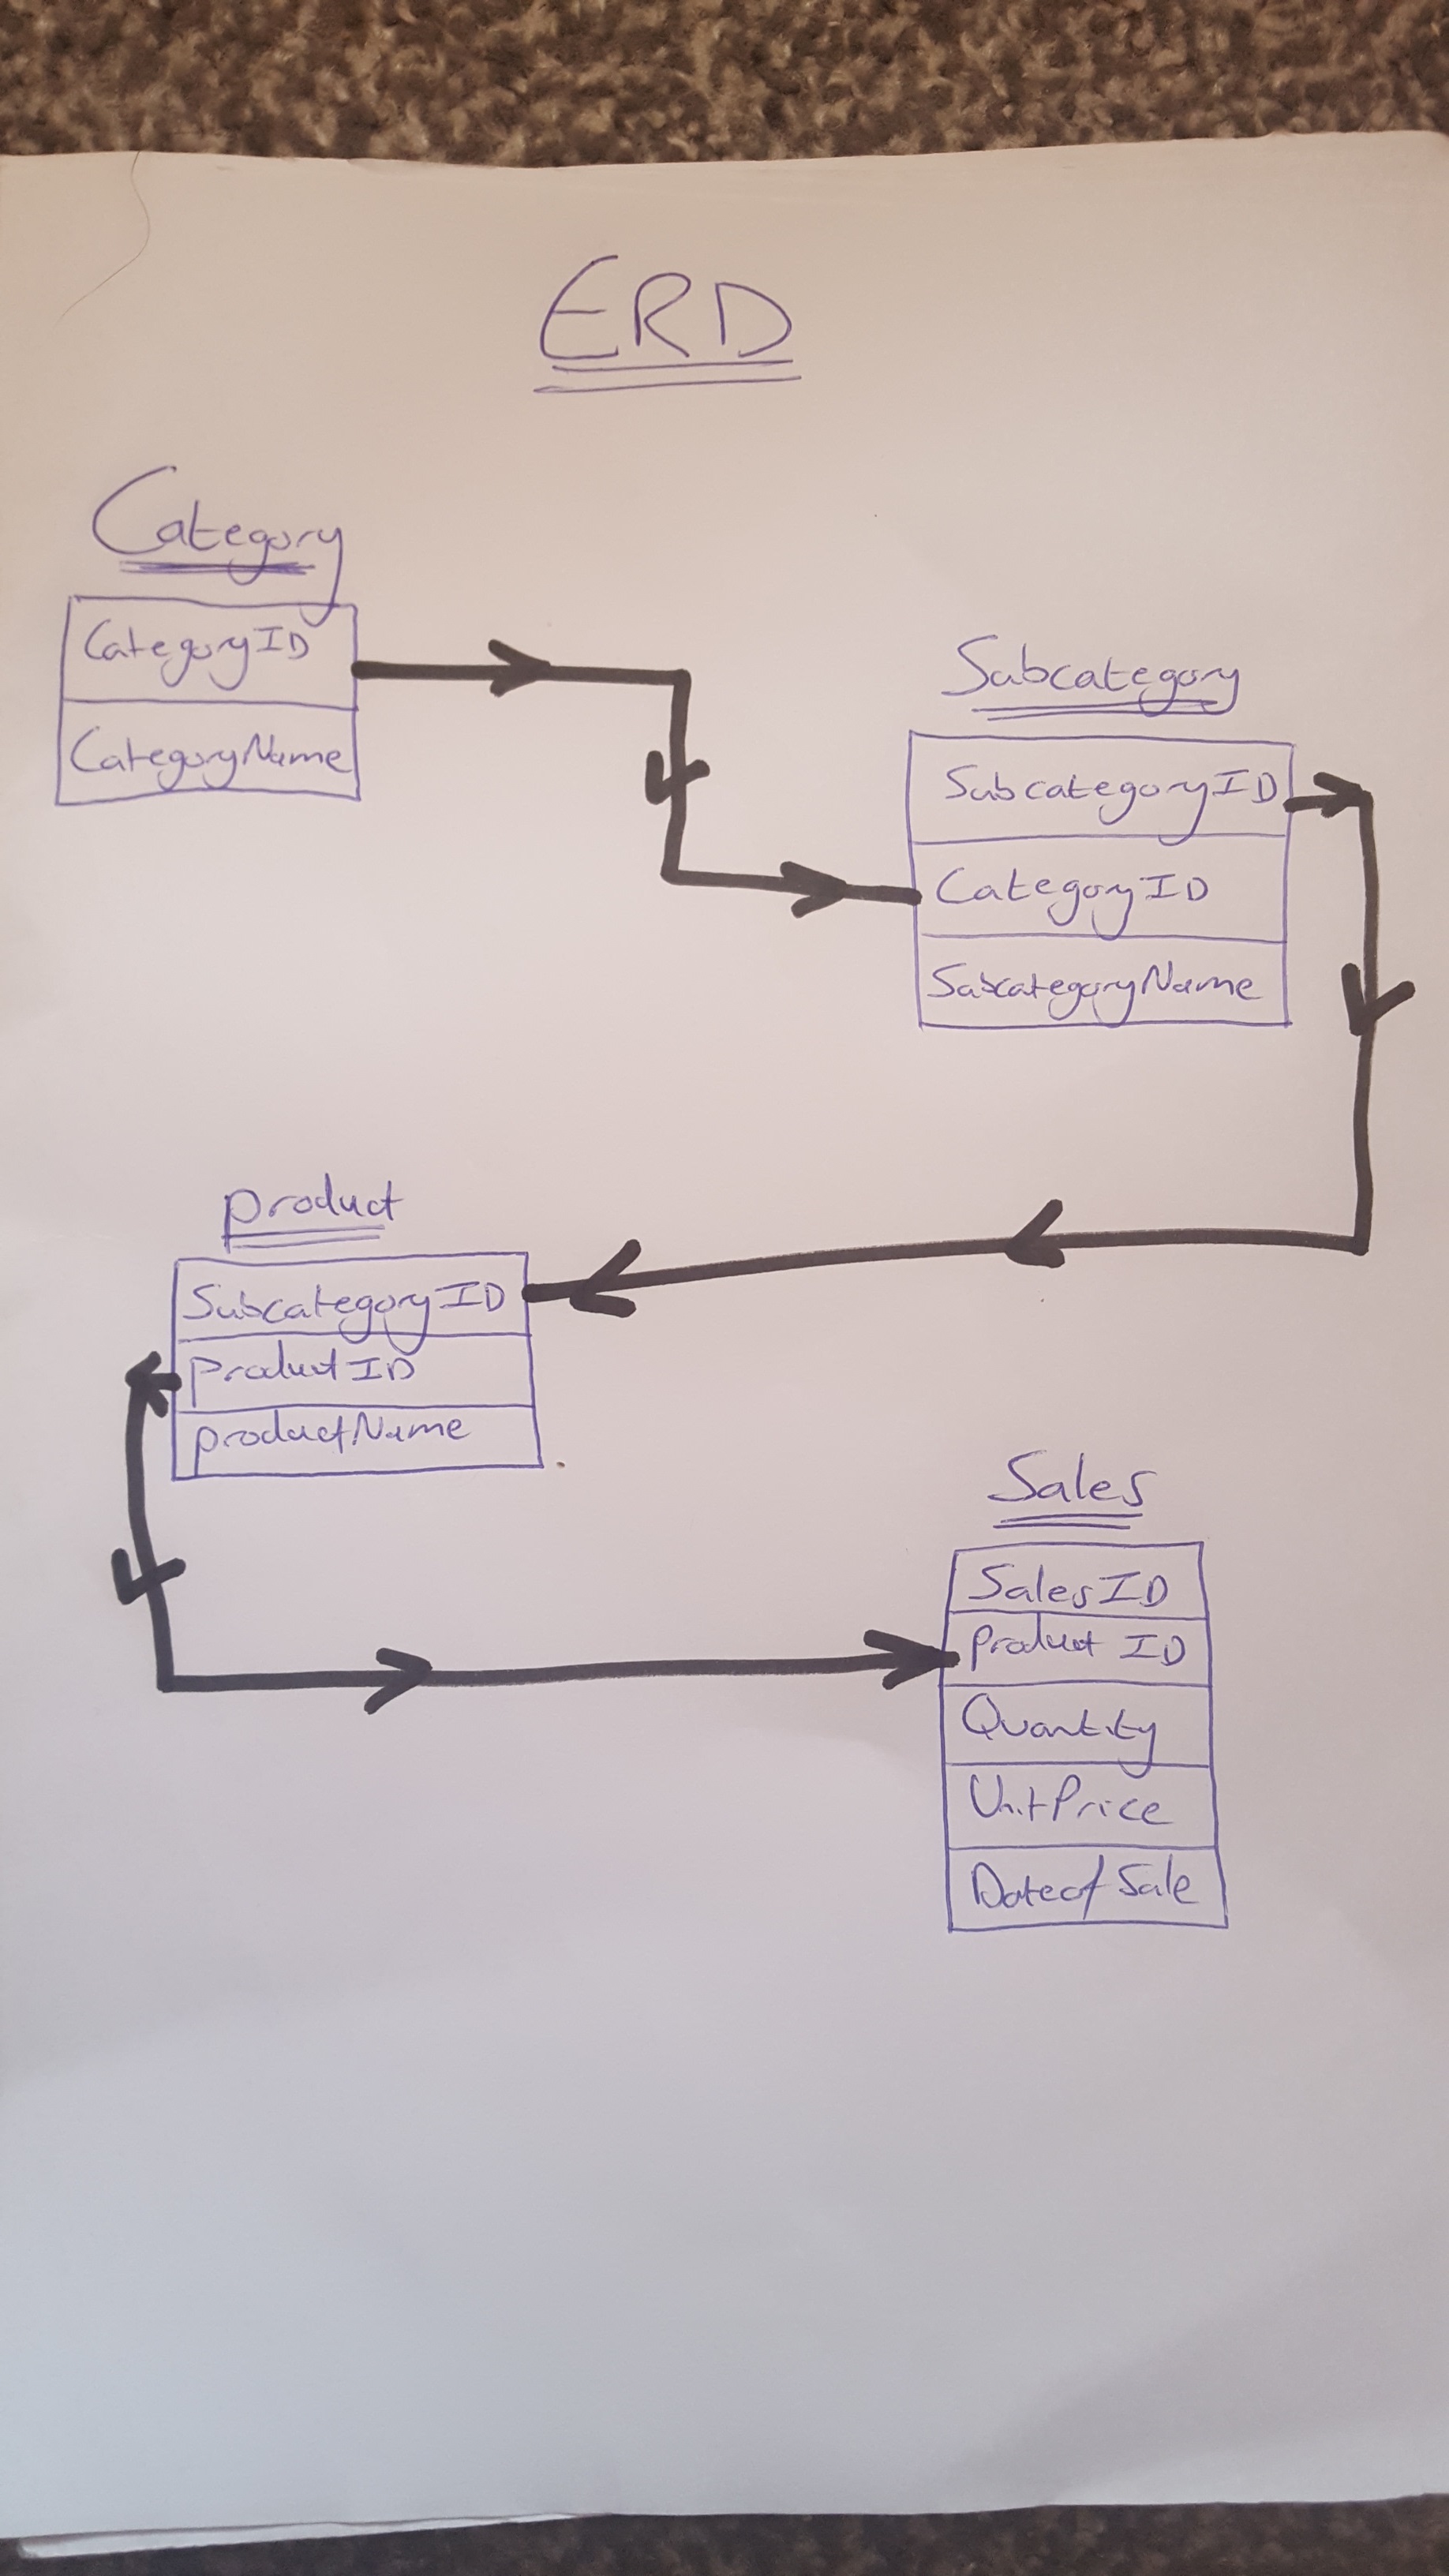 ERD
Category
CategoryID
CategoryName
Subcategory
SubcategoryID
CategoryID
SubcategoryName
product
SubcategoryID
productID
productName
Sales
SalesID
Product ID
Quantity
UnitPrice
Dateof Sale